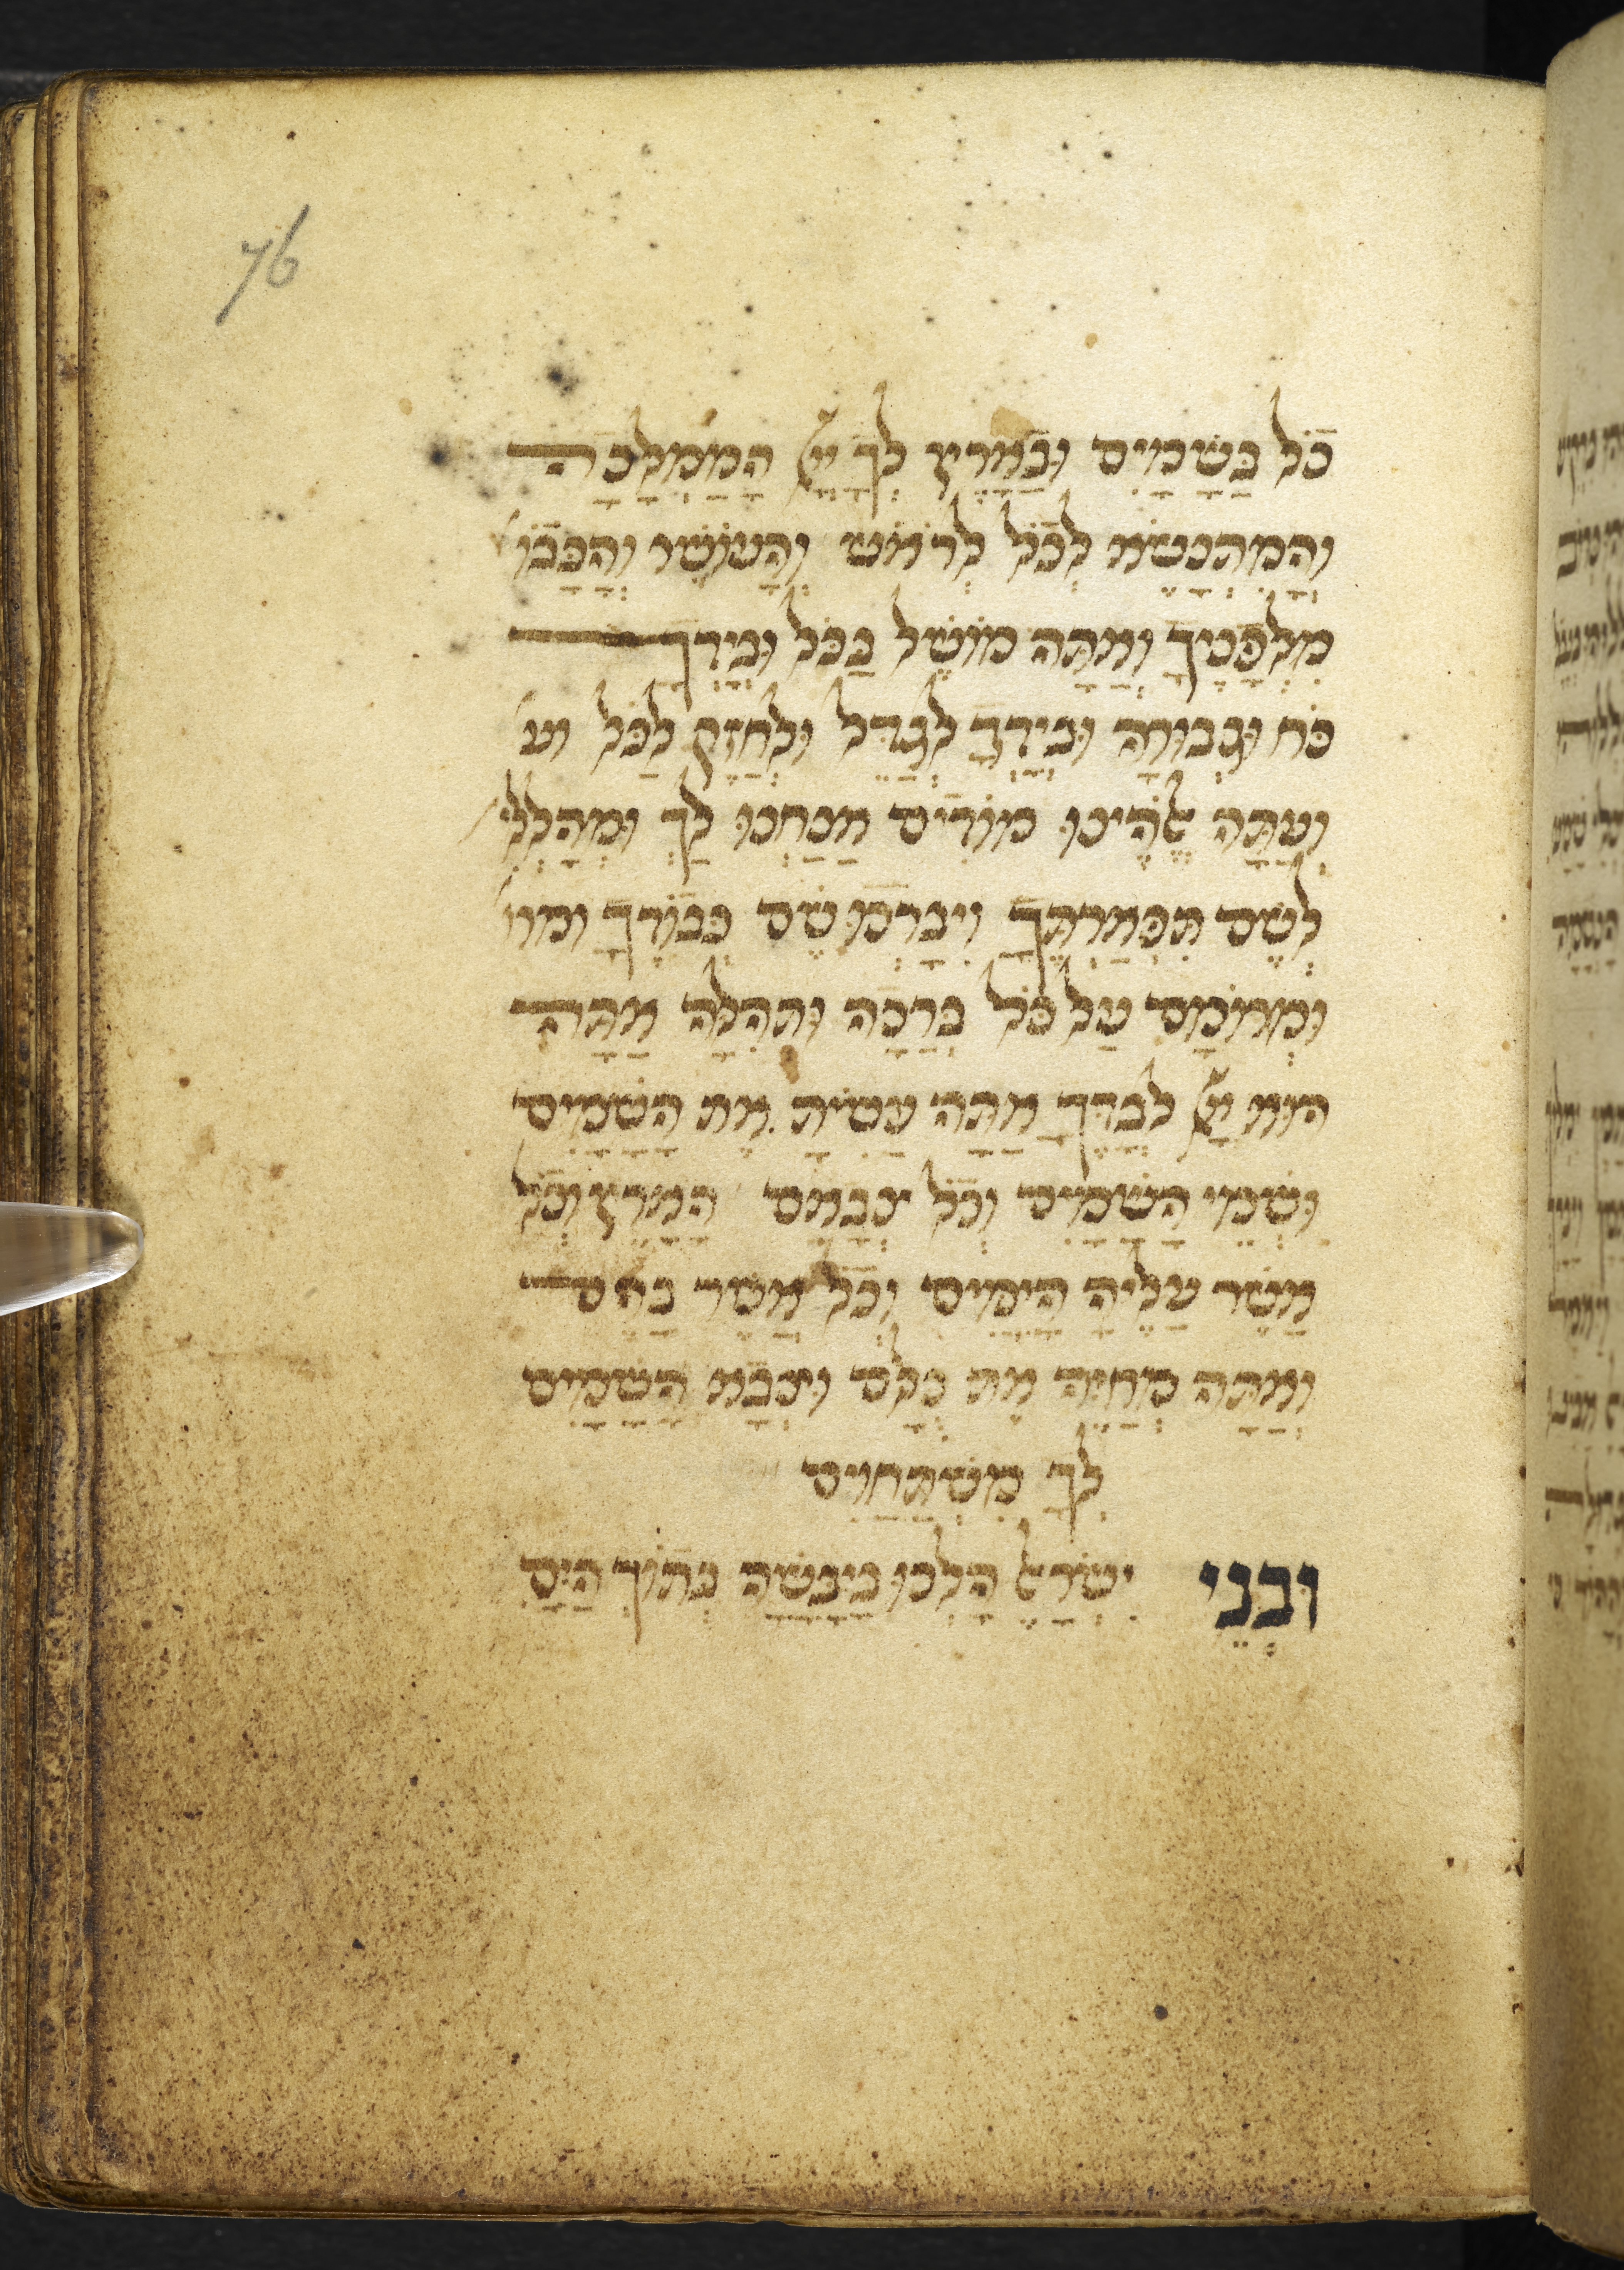 76
כׇּל בַּשָּׁמַיִם וּבָאָרֶץ לְךָ יְיָ הַמַּמְלָכָה
וְהַמִּתְנַשֵּׂא לְכֹל לְרֹאשׁ וְהָעוֹשֶׁר וְהַכָּבוֹ
מִלְּפָנֶיךָ וְאַתָּה מוֹשֵׁל בַּכֹּל וּבְיָדְךָ
כֹּחַ וּגְבוּרָה וּבְיָדְךָ לְגַדֵּל וּלְחַזֵּק לַכֹּל וע
וְעַתָּה אֱלֹהֵינוּ מוֹדִים אֲנַחְנוּ לָךְ וּמְהַלְלִי
לְשֵׁם תִּפְאַרְתֶּךָ וִיבָרְכוּ שֵׁם כְּבוֹדֶךָ ומרו
וּמְרוֹמַם עַל כׇּל בְּרָכָה וּתְהִלָּה אַתָּה
הוּא יְיָ לְבַדֶּךָ אַתָּה עָשִׂיתָ אֶת הַשָּׁמַיִם
וּשְׁמֵי הַשָּׁמַיִם וְכׇל צְבָאָם הָאָרֶץ וְכׇל
אֲשֶׁר עָלֶיהָ הַיַּמִּים וְכׇל אֲשֶׁר בָּהֶם
וְאַתָּה מְחַיֶּה אֶת כֻּלָּם וּצְבָא הַשָּׁמַיִם
לְךָ מִשְׁתַּחֲוִים
וּבְנֵי יִשְׂרָאֵל הָלְכוּ בַיַּבָּשָׁה בְּתוֹךְ הַיָּם